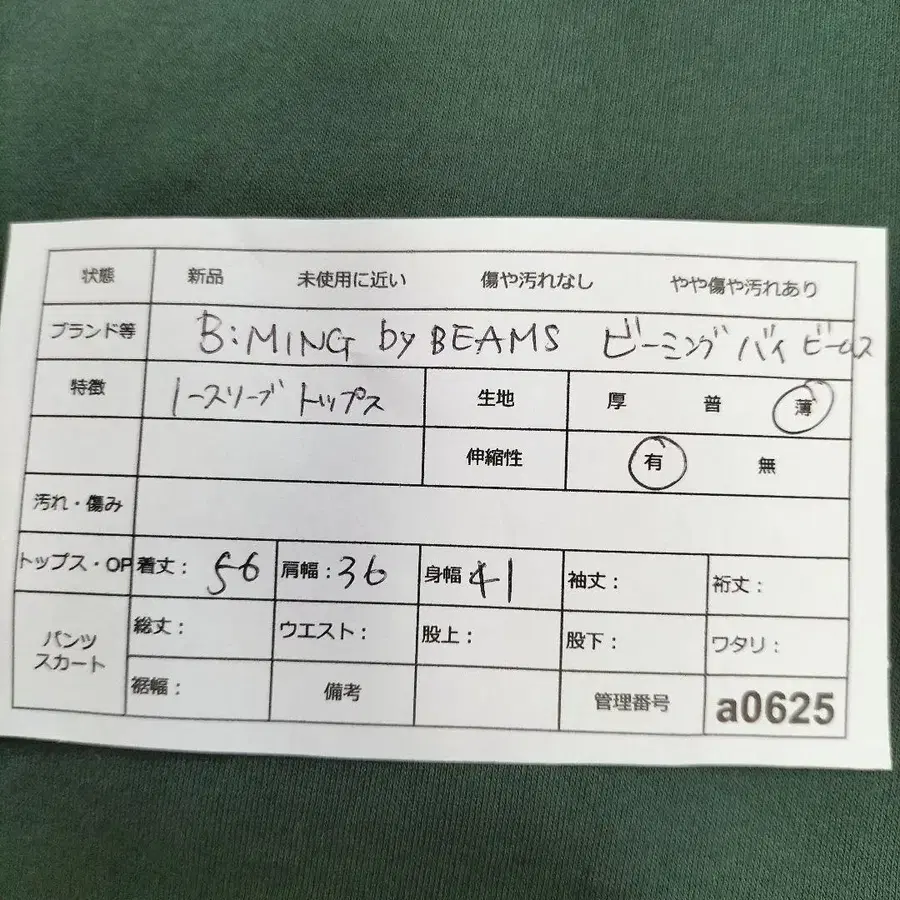 状態 新品 未使用に近い 傷や汚れなし やや傷や汚れあり
ブランド等 B:MING by BEAMS ビーミング バイ ビームス
特徴 ノースリーブ トップス 生地 厚 普 薄
伸縮性 有 無
汚れ・傷み
トップス・OP 着丈: 56 肩幅: 36 身幅 41 袖丈: 裄丈:
パンツ スカート 総丈: ウエスト: 股上: 股下: ワタリ:
裾幅: 備考 管理番号 a0625